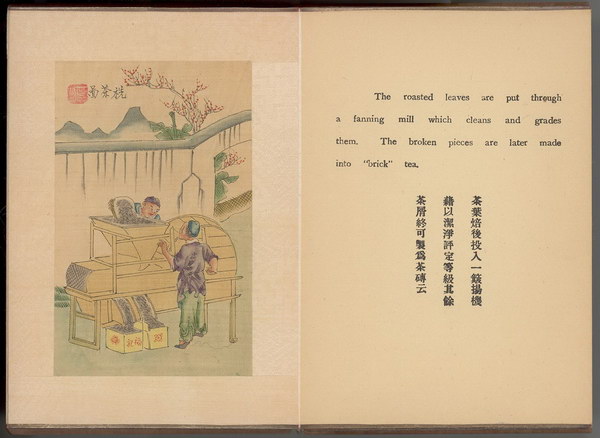 茶
The roasted leaves are put through
a fanning mill which cleans and grades
them. The broken pieces are later made
into "brick" tea.
茶葉焙後投入一簸揚機
藉以潔淨評定等級其餘
茶屑終可製爲茶磚云